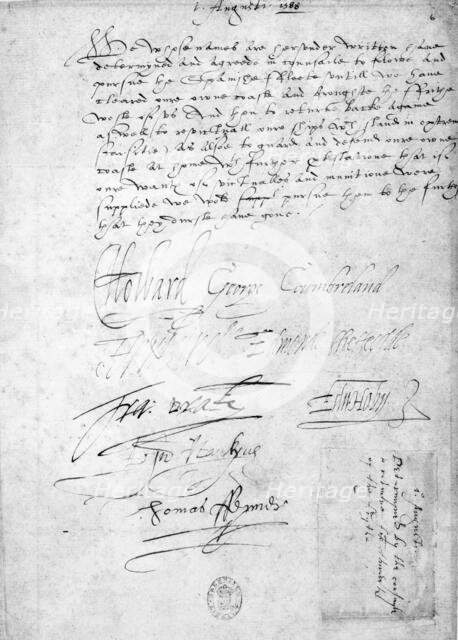 1. Augusti. 1588
6
We whose names are hereunder written have
determyned and agreede in counsaile to folowe and
pursue the Spanishe Fleete untill we have
cleared oure owne coaste and broughte the Frithe
weste of us and then to returne backe againe
as well to revictuall oure ships wch stand in extreme
scarsitie as alsoe to guard and defend oure owne
coaste at home wth further protestatione that if
oure wants of victualles and munitione were
suppliede we wold pursue them to the furthest
that they durste have gone.
C Howard George Cumbreland
Edmonde Sheffeylde
Fra: Drake Edw Hoby
John Hawkyns
Thomas Fenner
1 Augusti
Determined by the counsayle
Heritage